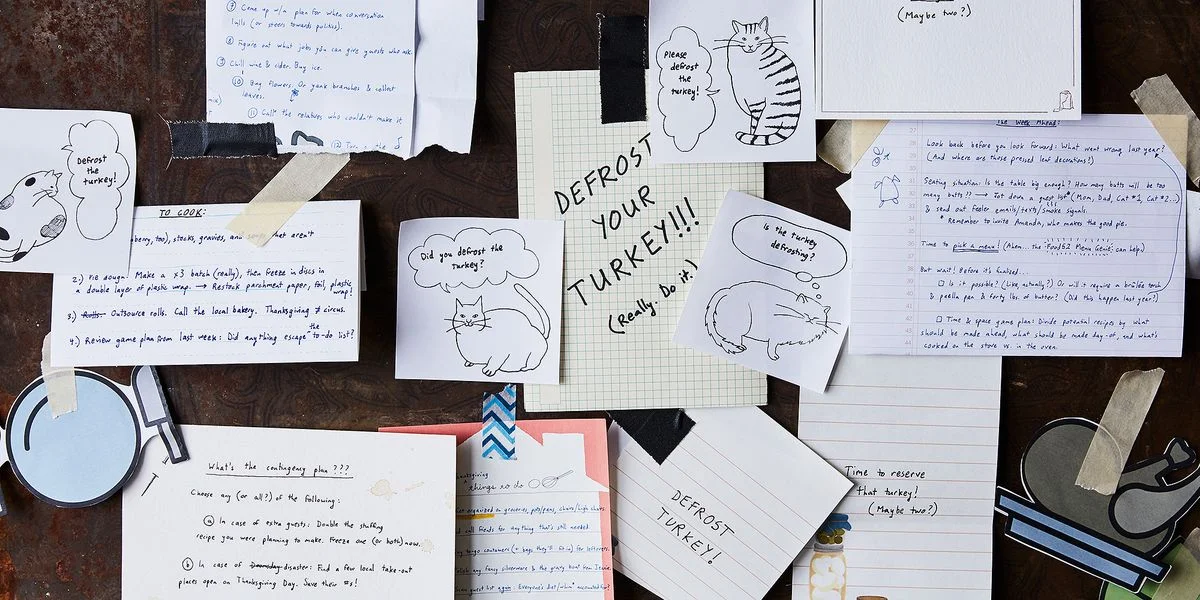 ⑦ Come up w/a plan for when conversation
lulls (or steers towards politics).
⑧ Figure out what jobs you can give guests who ask.
⑨ Chill wine & cider. Buy ice.
⑩ Buy flowers. Or yank branches & collect
leaves.
⑪ Call the relatives who couldn't make it
(12)
Please
defrost
the
turkey!
(Maybe two?)
Defrost
the
turkey!
TO COOK:
berry, too), stocks, gravies, and
aren't
2.) Pie dough: Make a x3 batch (really), then freeze in discs in
a double layer of plastic wrap. → Restock parchment paper, foil, plastic
wrap!
3.) Rolls: Outsource rolls. Call the local bakery. Thanksgiving ≠ circus.
4.) Review game plan from last week: Did anything escape the to-do list?
Did you defrost the
turkey?
DEFROST
YOUR
TURKEY!!!
(Really. Do it.)
Is the turkey
defrosting?
The Week Ahead:
Look back before you look forward: What went wrong last year?
(And where are those pressed leaf decorations?)
Seating situation: Is the table big enough? How many butts will be too
many butts?? → Jot down a guest list (Mom, Dad, Cat #1, Cat #2..)
& send out feeler emails/texts/smoke signals.
* Remember to invite Amanda, who makes the good pie.
Time to pick a menu! (Ahem.. the Food52 Menu Genie can help)
But wait! Before it's finalized...
□ Is it possible? (Like, actually?) Or will it require a brûlée torch
& paella pan & forty lbs. of butter? (Did this happen last year?)
□ Time & space game plan: Divide potential recipes by what
should be made ahead, what should be made day-of, and what's
cooked on the stove vs. in the oven.
What's the contingency plan???
Choose any (or all?) of the following:
ⓐ In case of extra guests: Double the stuffing
recipe you were planning to make. Freeze one (or both) now.
ⓑ In case of Doomsday disaster: Find a few local take-out
places open on Thanksgiving Day. Save their #s!
things to do
organized on groceries, pots/pans, chairs/high chairs
call friends for anything that's still needed
to-go containers (+ bags they'll fit in) for leftovers
any fancy silverware & the gravy boat from
guest list again: Everyone's diet/whim accounted for?
DEFROST
TURKEY!
Time to reserve
that turkey!
(Maybe two?)